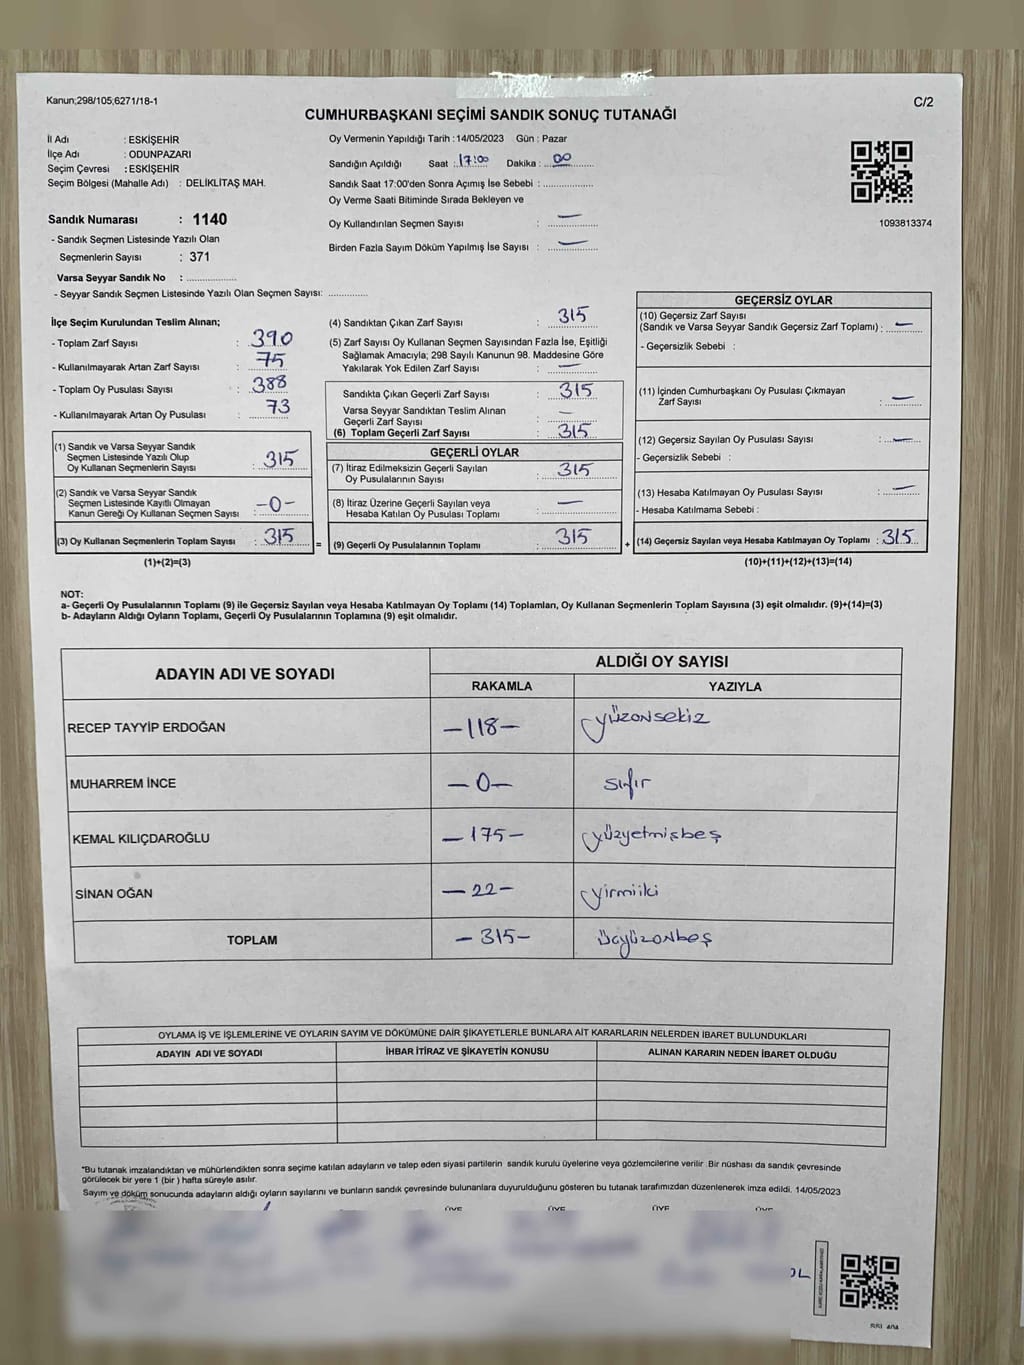 Kanun;298/105;6271/18-1
C/2
CUMHURBAŞKANI SEÇİMİ SANDIK SONUÇ TUTANAĞI
İl Adı : ESKİŞEHİR
İlçe Adı : ODUNPAZARI
Seçim Çevresi : ESKİŞEHİR
Seçim Bölgesi (Mahalle Adı) : DELİKLİTAŞ MAH.
Sandık Numarası : 1140
- Sandık Seçmen Listesinde Yazılı Olan
Seçmenlerin Sayısı : 371
Varsa Seyyar Sandık No : ..................
- Seyyar Sandık Seçmen Listesinde Yazılı Olan Seçmen Sayısı: ..............
Oy Vermenin Yapıldığı Tarih : 14/05/2023 Gün : Pazar
Sandığın Açıldığı Saat : 17:00 Dakika : 00
Sandık Saat 17:00'den Sonra Açımış İse Sebebi : ..................
Oy Verme Saati Bitiminde Sırada Bekleyen ve
Oy Kullandırılan Seçmen Sayısı : —
Birden Fazla Sayım Döküm Yapılmış İse Sayısı : —
1093813374
İlçe Seçim Kurulundan Teslim Alınan;
- Toplam Zarf Sayısı : 390
- Kullanılmayarak Artan Zarf Sayısı : 75
- Toplam Oy Pusulası Sayısı : 388
- Kullanılmayarak Artan Oy Pusulası : 73
(1) Sandık ve Varsa Seyyar Sandık
Seçmen Listesinde Yazılı Olup
Oy Kullanan Seçmenlerin Sayısı : 315
(2) Sandık ve Varsa Seyyar Sandık
Seçmen Listesinde Kayıtlı Olmayan
Kanun Gereği Oy Kullanan Seçmen Sayısı : -0-
(3) Oy Kullanan Seçmenlerin Toplam Sayısı : 315 =
(1)+(2)=(3)
(4) Sandıktan Çıkan Zarf Sayısı : 315
(5) Zarf Sayısı Oy Kullanan Seçmen Sayısından Fazla İse, Eşitliği
Sağlamak Amacıyla; 298 Sayılı Kanunun 98. Maddesine Göre
Yakılarak Yok Edilen Zarf Sayısı : —
Sandıkta Çıkan Geçerli Zarf Sayısı : 315
Varsa Seyyar Sandıktan Teslim Alınan
Geçerli Zarf Sayısı : —
(6) Toplam Geçerli Zarf Sayısı : 315
GEÇERLİ OYLAR
(7) İtiraz Edilmeksizin Geçerli Sayılan
Oy Pusulalarının Sayısı : 315
(8) İtiraz Üzerine Geçerli Sayılan veya
Hesaba Katılan Oy Pusulası Toplamı : —
(9) Geçerli Oy Pusulalarının Toplamı : 315 +
GEÇERSİZ OYLAR
(10) Geçersiz Zarf Sayısı
(Sandık ve Varsa Seyyar Sandık Geçersiz Zarf Toplamı) : —
- Geçersizlik Sebebi :
(11) İçinden Cumhurbaşkanı Oy Pusulası Çıkmayan
Zarf Sayısı : —
(12) Geçersiz Sayılan Oy Pusulası Sayısı : —
- Geçersizlik Sebebi :
(13) Hesaba Katılmayan Oy Pusulası Sayısı : —
- Hesaba Katılmama Sebebi :
(14) Geçersiz Sayılan veya Hesaba Katılmayan Oy Toplamı : 315
(10)+(11)+(12)+(13)=(14)
NOT:
a- Geçerli Oy Pusulalarının Toplamı (9) ile Geçersiz Sayılan veya Hesaba Katılmayan Oy Toplamı (14) Toplamları, Oy Kullanan Seçmenlerin Toplam Sayısına (3) eşit olmalıdır. (9)+(14)=(3)
b- Adayların Aldığı Oyların Toplamı, Geçerli Oy Pusulalarının Toplamına (9) eşit olmalıdır.
ADAYIN ADI VE SOYADI
ALDIĞI OY SAYISI
RAKAMLA YAZIYLA
RECEP TAYYİP ERDOĞAN -118- yüzonsekiz
MUHARREM İNCE -0- sıfır
KEMAL KILIÇDAROĞLU -175- yüzyetmişbeş
SİNAN OĞAN -22- yirmiiki
TOPLAM -315- üçyüzonbeş
OYLAMA İŞ VE İŞLEMLERİNE VE OYLARIN SAYIM VE DÖKÜMÜNE DAİR ŞİKAYETLERLE BUNLARA AİT KARARLARIN NELERDEN İBARET BULUNDUKLARI
ADAYIN ADI VE SOYADI İHBAR İTİRAZ VE ŞİKAYETİN KONUSU ALINAN KARARIN NEDEN İBARET OLDUĞU
*Bu tutanak imzalandıktan ve mühürlendikten sonra seçime katılan adayların ve talep eden siyasi partilerin sandık kurulu üyelerine veya gözlemcilerine verilir. Bir nüshası da sandık çevresinde
görülecek bir yere 1 (bir) hafta süreyle asılır.
Sayım ve döküm sonucunda adayların aldığı oyların sayılarını ve bunların sandık çevresinde bulunanlara duyurulduğunu gösteren bu tutanak tarafımızdan düzenlenerek imza edildi. 14/05/2023
ÜYE ÜYE ÜYE ÜYE